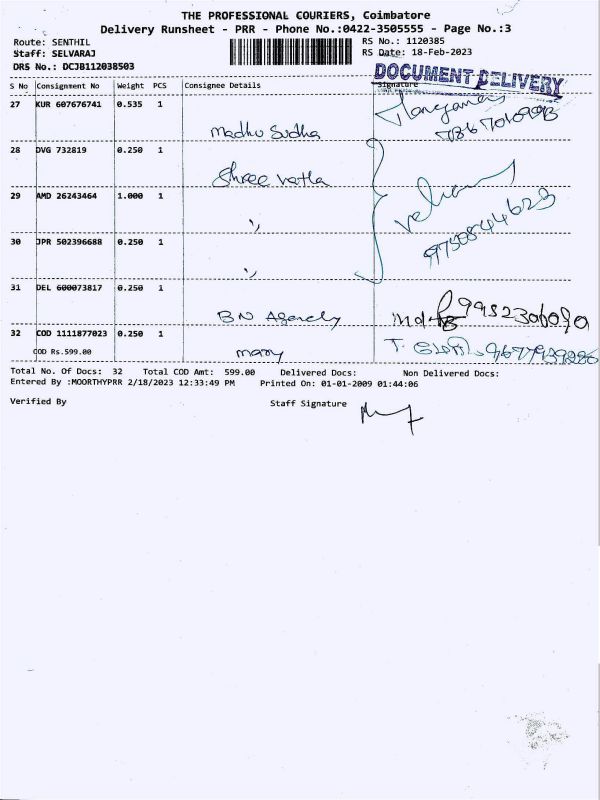 THE PROFESSIONAL COURIERS, Coimbatore
Delivery Runsheet - PRR - Phone No.:0422-3505555 - Page No.:3
Route: SENTHIL
RS No.: 1120385
Staff: SELVARAJ
RS Date: 18-Feb-2023
DRS No.: DCJB112038503
DOCUMENT DELIVERY
S No Consignment No Weight PCS Consignee Details Signature
27 KUR 607676741 0.535 1
Madhu Sudha
28 DVG 732819 0.250 1
Shree Vatla
29 AMD 26243464 1.000 1
"
9750844623
30 JPR 502396688 0.250 1
"
31 DEL 600073817 0.250 1
BN Agency
32 COD 1111877023 0.250 1
COD Rs.599.00
mary
Total No. Of Docs: 32 Total COD Amt: 599.00 Delivered Docs: Non Delivered Docs:
Entered By :MOORTHYPRR 2/18/2023 12:33:49 PM Printed On: 01-01-2009 01:44:06
Verified By Staff Signature